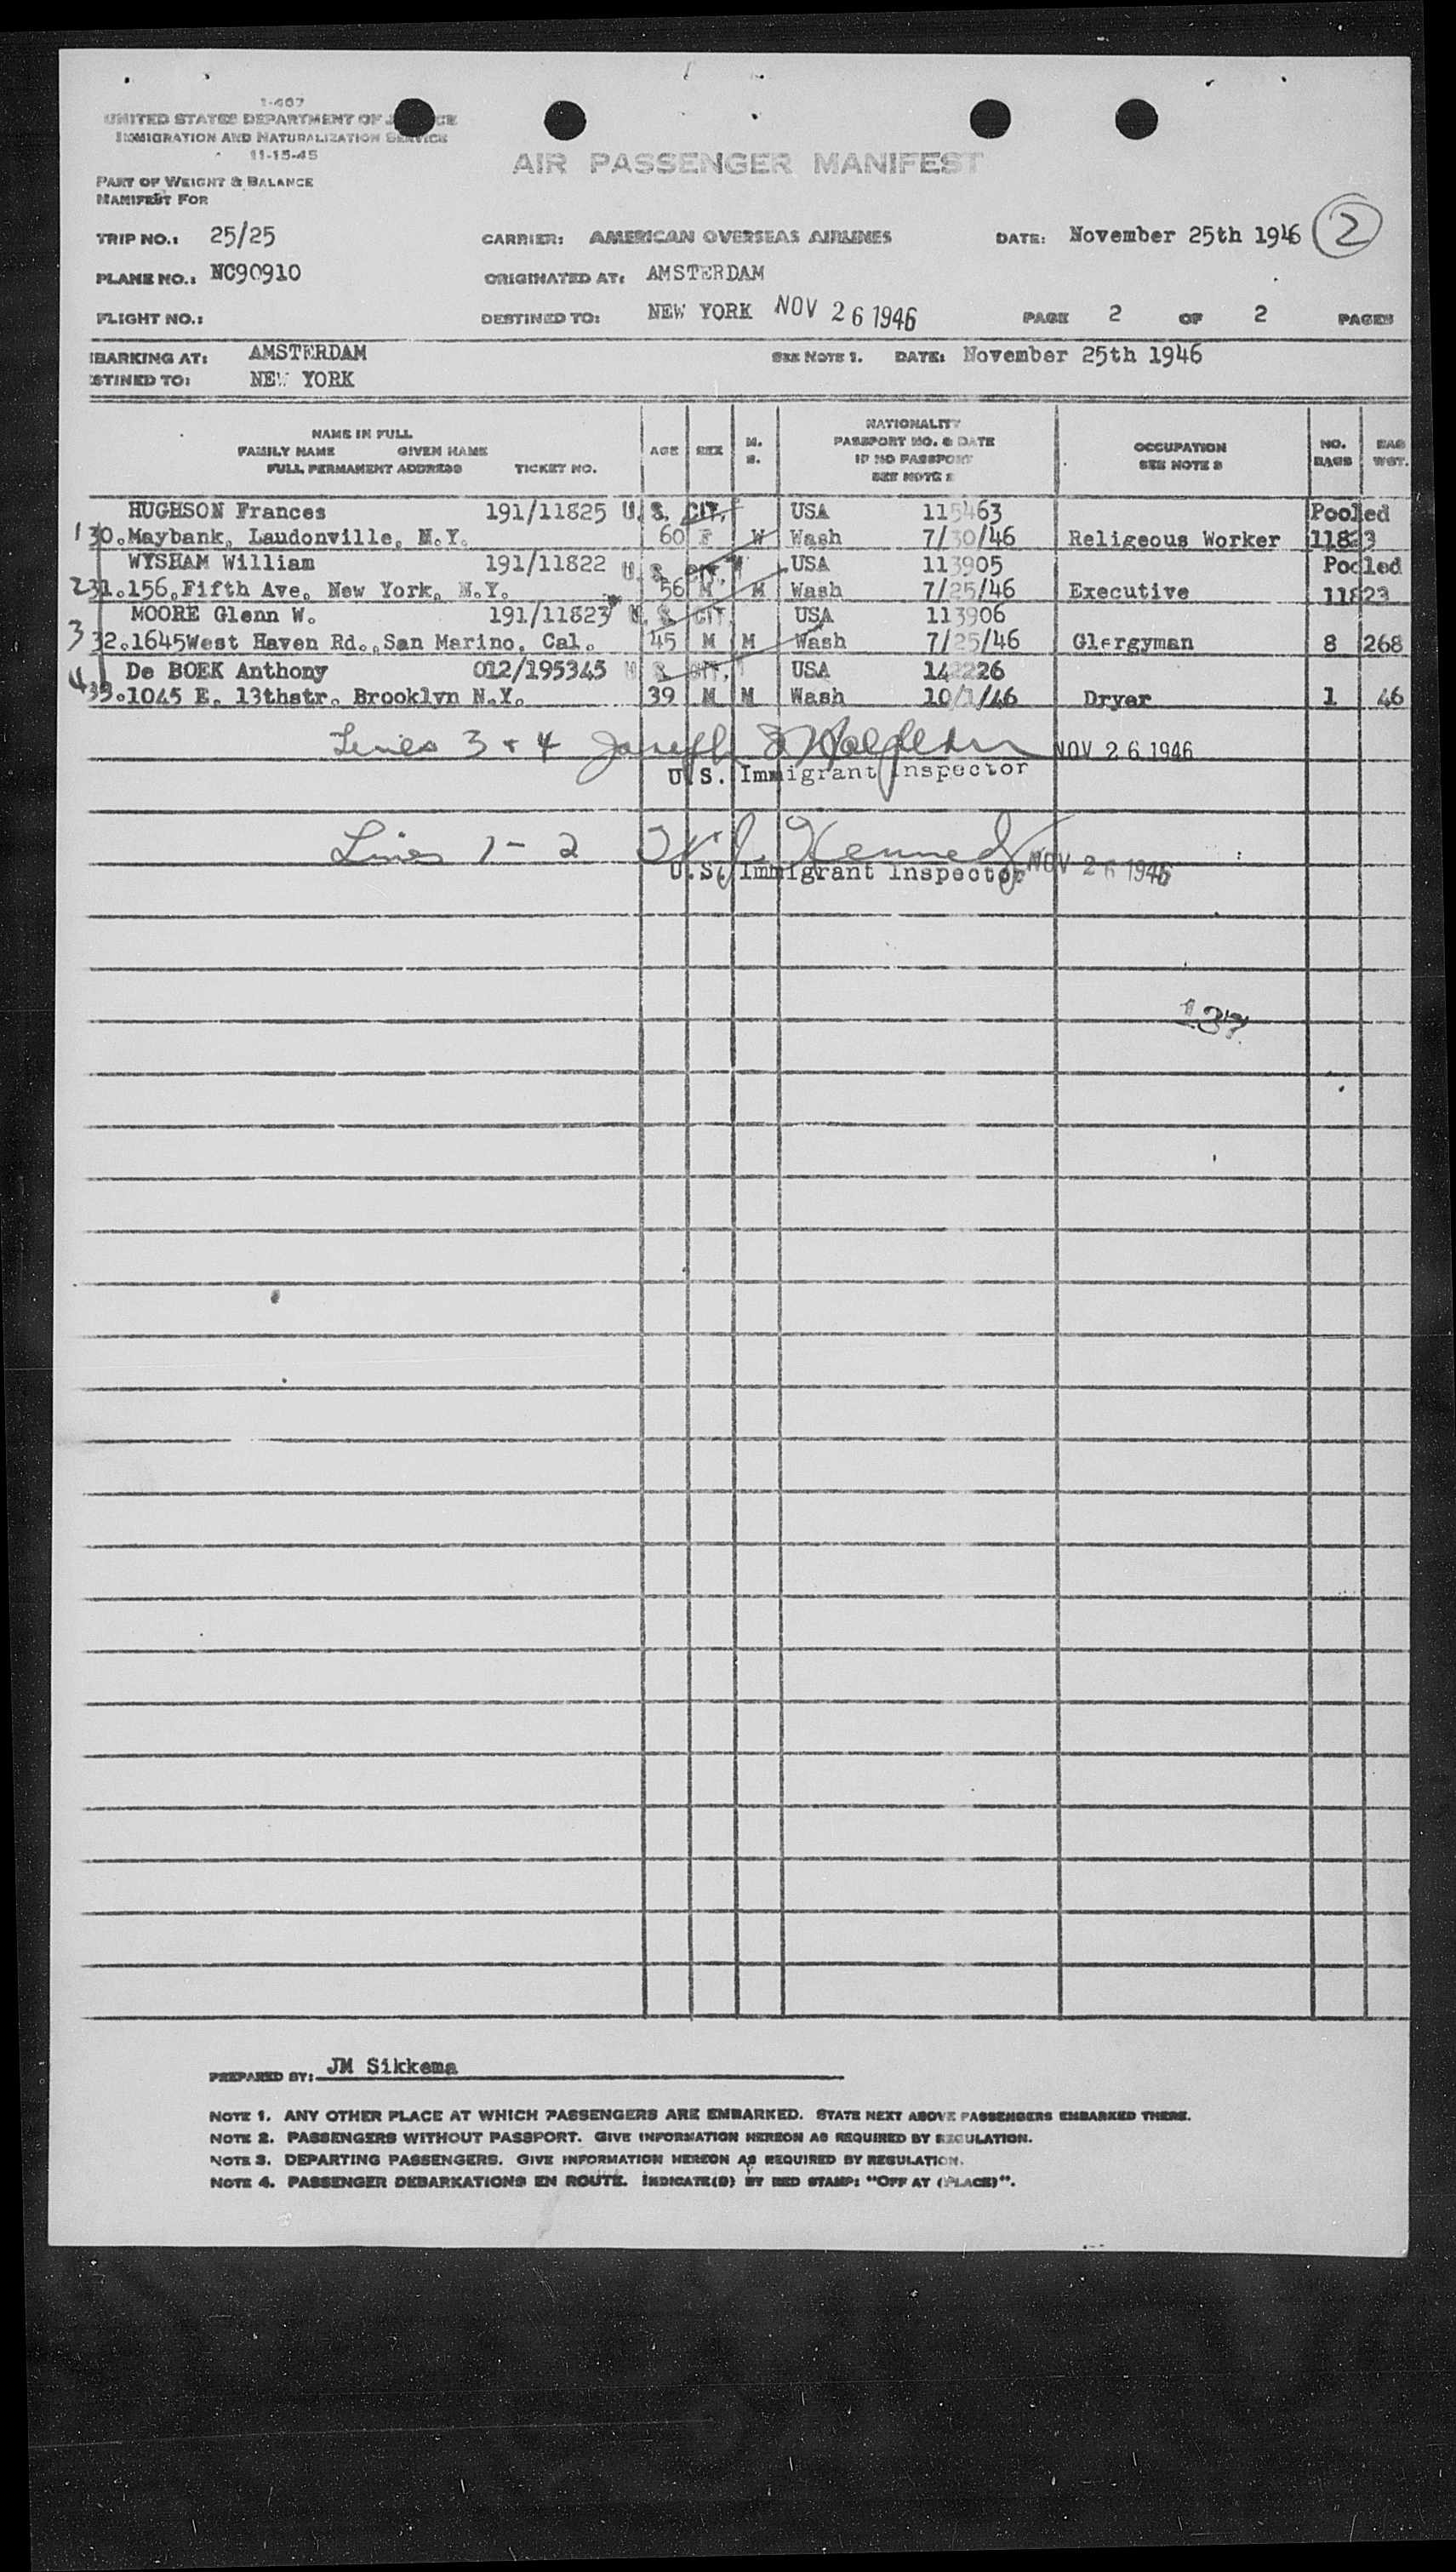 1-467
UNITED STATES DEPARTMENT OF J CE
IMMIGRATION AND NATURALIZATION SERVICE
11-15-45
AIR PASSENGER MANIFEST
PART OF WEIGHT & BALANCE
MANIFEST FOR
TRIP NO.: 25/25 CARRIER: AMERICAN OVERSEAS AIRLINES DATE: November 25th 1946 2
PLANE NO.: NC90910 ORIGINATED AT: AMSTERDAM
FLIGHT NO.: DESTINED TO: NEW YORK NOV 26 1946 PAGE 2 OF 2 PAGES
BARKING AT: AMSTERDAM SEE NOTE 1. DATE: November 25th 1946
STINED TO: NEW YORK
NAME IN FULL
FAMILY NAME GIVEN NAME
FULL PERMANENT ADDRESS TICKET NO.
AGE SEX M. S.
NATIONALITY
PASSPORT NO. & DATE
IF NO PASSPORT
SEE NOTE 2
OCCUPATION
SEE NOTE 3
NO. BAGS
BAG WGT.
HUGHSON Frances 191/11825 U. S. CIT. USA 115463 Pooled
1 30.Maybank, Laudonville, N.Y. 60 F W Wash 7/30/46 Religeous Worker 11823
WYSHAM William 191/11822 U. S. CIT. USA 113905 Pooled
2 31.156,Fifth Ave. New York, N.Y. 56 M M Wash 7/25/46 Executive 11823
MOORE Glenn W. 191/11823 U. S. CIT. USA 113906
3 32.1645West Haven Rd.,San Marino, Cal. 45 M M Wash 7/25/46 Glergyman 8 268
De BOEK Anthony 012/195345 U. S. CIT. USA 142226
4 33.1045 E. 13thstr. Brooklyn N.Y. 39 M M Wash 10/1/46 Dryer 1 46
Lines 3 + 4 Joseph NOV 26 1946
U.S. Immigrant Inspector
Lines 1-2 Kennedy
U.S. Immigrant Inspector NOV 26 1946
137
PREPARED BY: JM Sikkema
NOTE 1. ANY OTHER PLACE AT WHICH PASSENGERS ARE EMBARKED. STATE NEXT ABOVE PASSENGERS EMBARKED THERE.
NOTE 2. PASSENGERS WITHOUT PASSPORT. GIVE INFORMATION HEREON AS REQUIRED BY REGULATION.
NOTE 3. DEPARTING PASSENGERS. GIVE INFORMATION HEREON AS REQUIRED BY REGULATION.
NOTE 4. PASSENGER DEBARKATIONS EN ROUTE. INDICATE(D) BY RED STAMP: "OFF AT (PLACE)".